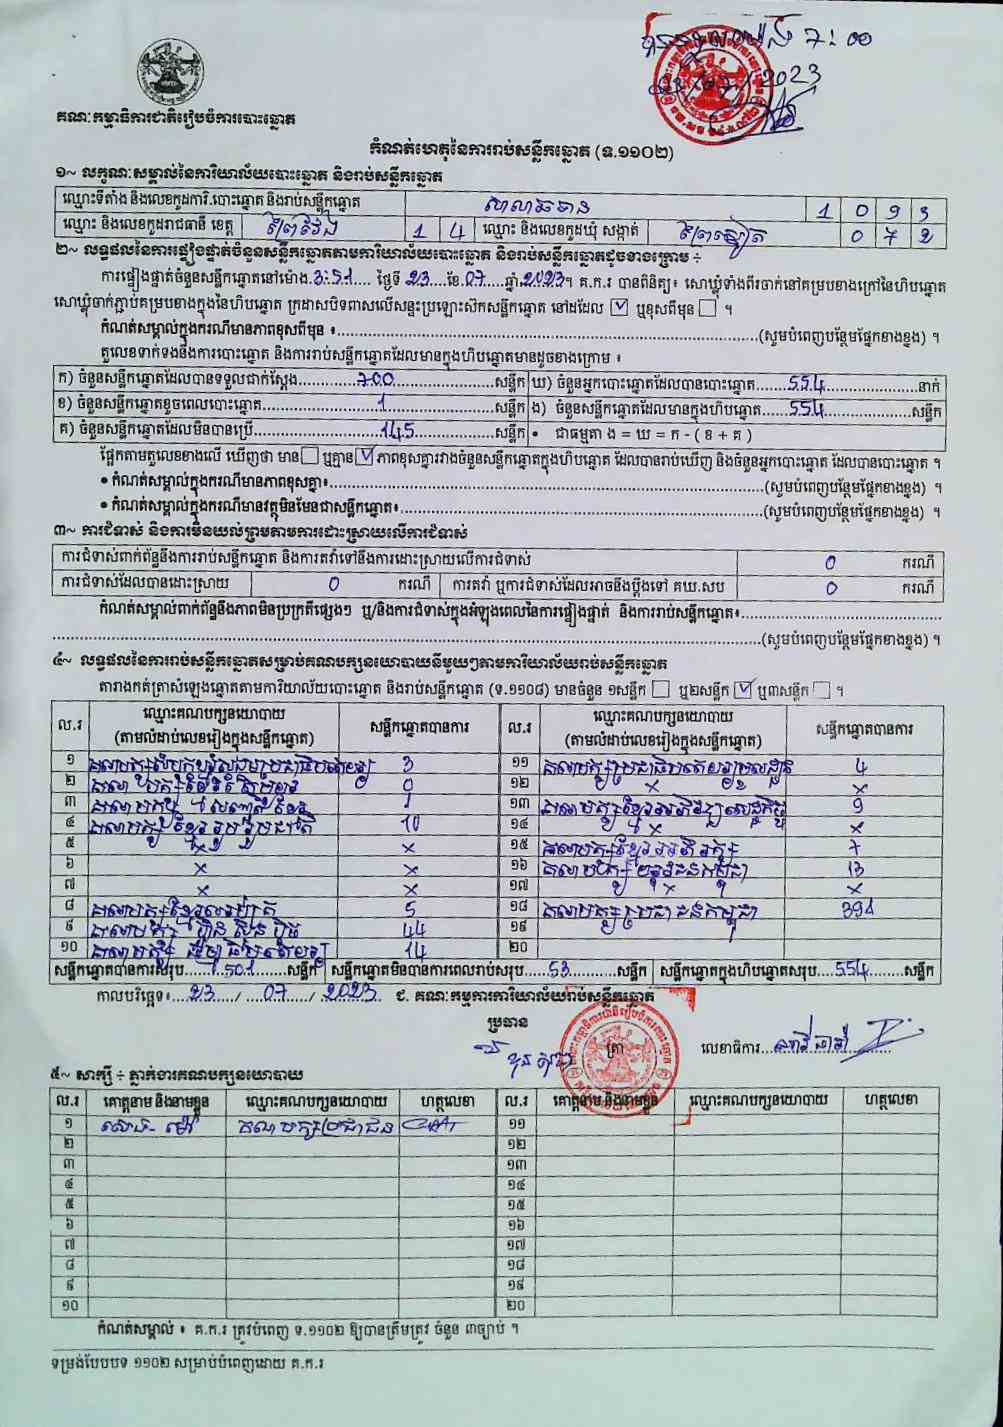 ៣: ០០
23/07/2023
គណៈកម្មាធិការជាតិរៀបចំការបោះឆ្នោត
កំណត់ហេតុនៃការរាប់សន្លឹកឆ្នោត (ទ.១១០២)
១~ លក្ខណៈសម្គាល់នៃការិយាល័យបោះឆ្នោត និងរាប់សន្លឹកឆ្នោត
ឈ្មោះទីតាំង និងលេខកូដការិ.បោះឆ្នោត និងរាប់សន្លឹកឆ្នោត សាលាឆទាន 1 0 9 3
ឈ្មោះ និងលេខកូដរាជធានី ខេត្ត ព្រៃវែង 1 4 ឈ្មោះ និងលេខកូដឃុំ សង្កាត់ 0 7 2
២~ លទ្ធផលនៃការផ្ទៀងផ្ទាត់ចំនួនសន្លឹកឆ្នោតតាមការិយាល័យបោះឆ្នោត និងរាប់សន្លឹកឆ្នោតដូចខាងក្រោម ÷
ការផ្ទៀងផ្ទាត់ចំនួនសន្លឹកឆ្នោតនៅម៉ោង 3:51 ថ្ងៃទី 23 ខែ 07 ឆ្នាំ 2023។ គ.ក.រ បានពិនិត្យ៖ សោឃ្លុំទាំងពីរចាក់នៅគម្របខាងក្រៅនៃហិបឆ្នោត
សោឃ្លុំចាក់ភ្ជាប់គម្របខាងក្នុងនៃហិបឆ្នោត ក្រដាសបិទពាសលើសន្ទះប្រឡោះស៊កសន្លឹកឆ្នោត នៅដដែល ☑ ឬខុសពីមុន ☐ ។
កំណត់សម្គាល់ក្នុងករណីមានភាពខុសពីមុន ៖ (សូមបំពេញបន្ថែមផ្នែកខាងខ្នង) ។
តួលេខទាក់ទងនឹងការបោះឆ្នោត និងការរាប់សន្លឹកឆ្នោតដែលមានក្នុងហិបឆ្នោតមានដូចខាងក្រោម ៖
ក) ចំនួនសន្លឹកឆ្នោតដែលបានទទួលជាក់ស្ដែង 700 សន្លឹក ឃ) ចំនួនអ្នកបោះឆ្នោតដែលបានបោះឆ្នោត 554 នាក់
ខ) ចំនួនសន្លឹកឆ្នោតខូចពេលបោះឆ្នោត 1 សន្លឹក ង) ចំនួនសន្លឹកឆ្នោតដែលមានក្នុងហិបឆ្នោត 554 សន្លឹក
គ) ចំនួនសន្លឹកឆ្នោតដែលមិនបានប្រើ 145 សន្លឹក • ជាធម្មតា ង = ឃ = ក - ( ខ + គ )
ផ្អែកតាមតួលេខខាងលើ ឃើញថា មាន ☐ ឬគ្មាន ☑ ភាពខុសគ្នារវាងចំនួនសន្លឹកឆ្នោតក្នុងហិបឆ្នោត ដែលបានរាប់ឃើញ និងចំនួនអ្នកបោះឆ្នោត ដែលបានបោះឆ្នោត ។
• កំណត់សម្គាល់ក្នុងករណីមានភាពខុសគ្នា៖ (សូមបំពេញបន្ថែមផ្នែកខាងខ្នង) ។
• កំណត់សម្គាល់ក្នុងករណីមានវត្ថុមិនមែនជាសន្លឹកឆ្នោត៖ (សូមបំពេញបន្ថែមផ្នែកខាងខ្នង) ។
៣~ ការជំទាស់ និងការមិនយល់ព្រមតាមការដោះស្រាយលើការជំទាស់
ការជំទាស់ពាក់ព័ន្ធនឹងការរាប់សន្លឹកឆ្នោត និងការតវ៉ាទៅនឹងការដោះស្រាយលើការជំទាស់ 0 ករណី
ការជំទាស់ដែលបានដោះស្រាយ 0 ករណី ការតវ៉ា ឬការជំទាស់ដែលអាចនឹងប្ដឹងទៅ គឃ.សប 0 ករណី
កំណត់សម្គាល់ពាក់ព័ន្ធនឹងភាពមិនប្រក្រតីផ្សេងៗ ឬ/និងការជំទាស់ក្នុងអំឡុងពេលនៃការផ្ទៀងផ្ទាត់ និងការរាប់សន្លឹកឆ្នោត៖
(សូមបំពេញបន្ថែមផ្នែកខាងខ្នង) ។
៤~ លទ្ធផលនៃការរាប់សន្លឹកឆ្នោតសម្រាប់គណបក្សនយោបាយនីមួយៗតាមការិយាល័យរាប់សន្លឹកឆ្នោត
តារាងកត់ត្រាសំឡេងឆ្នោតតាមការិយាល័យបោះឆ្នោត និងរាប់សន្លឹកឆ្នោត (ទ.១១០៨) មានចំនួន ១សន្លឹក ☐ ឬ២សន្លឹក ☑ ឬ៣សន្លឹក ☐ ។
ល.រ ឈ្មោះគណបក្សនយោបាយ (តាមលំដាប់លេខរៀងក្នុងសន្លឹកឆ្នោត) សន្លឹកឆ្នោតបានការ ល.រ ឈ្មោះគណបក្សនយោបាយ (តាមលំដាប់លេខរៀងក្នុងសន្លឹកឆ្នោត) សន្លឹកឆ្នោតបានការ
១ 3 ១១ 4
២ 0 ១២ × ×
៣ 1 ១៣ 9
៤ គណបក្សខ្មែររួបរួមជាតិ 10 ១៤ × ×
៥ × × ១៥ 7
៦ × × ១៦ 13
៧ × × ១៧ × ×
៨ 5 ១៨ គណបក្សប្រជាជនកម្ពុជា 391
៩ គណបក្ស ហ៊្វុនស៊ិនប៉ិច 44 ១៩
១០ គណបក្ស ធម្មាធិបតេយ្យ 14 ២០
សន្លឹកឆ្នោតបានការសរុប 501 សន្លឹក សន្លឹកឆ្នោតមិនបានការពេលរាប់សរុប 53 សន្លឹក សន្លឹកឆ្នោតក្នុងហិបឆ្នោតសរុប 554 សន្លឹក
កាលបរិច្ឆេទ៖ 23 / 07 / 2023 ជ. គណៈកម្មការការិយាល័យរាប់សន្លឹកឆ្នោត
ប្រធាន
ត្រា លេខាធិការ
៥~ សាក្សី ÷ ភ្នាក់ងារគណបក្សនយោបាយ
ល.រ គោត្តនាម និងនាមខ្លួន ឈ្មោះគណបក្សនយោបាយ ហត្ថលេខា ល.រ គោត្តនាម និងនាមខ្លួន ឈ្មោះគណបក្សនយោបាយ ហត្ថលេខា
១ គណបក្សប្រជាជន ១១
២ ១២
៣ ១៣
៤ ១៤
៥ ១៥
៦ ១៦
៧ ១៧
៨ ១៨
៩ ១៩
១០ ២០
កំណត់សម្គាល់ ៖ គ.ក.រ ត្រូវបំពេញ ទ.១១០២ ឱ្យបានត្រឹមត្រូវ ចំនួន ៣ច្បាប់ ។
ទម្រង់បែបបទ ១១០២ សម្រាប់បំពេញដោយ គ.ក.រ